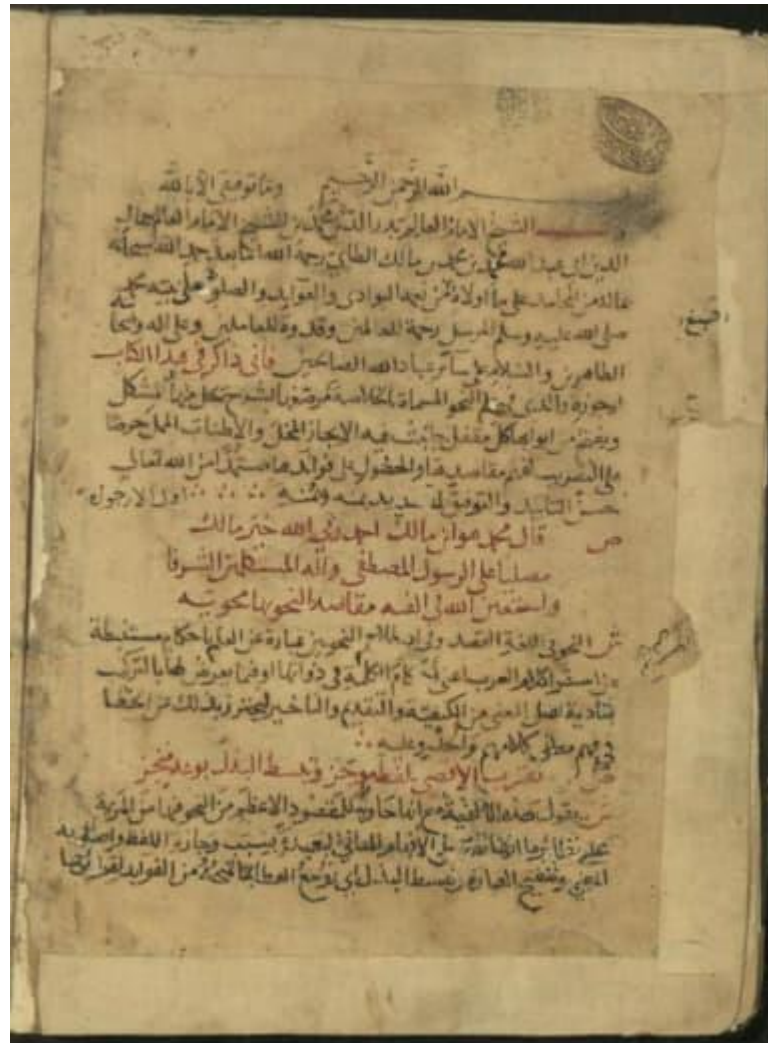 بسم الله الرحمن الرحيم وما توفيقي الا بالله
الشيخ الامام العالم بدر الدين محمد بن الشيخ الامام العالم جمال
الدين ابي عبد الله محمد بن محمد بن مالك الطائي رحمه الله اما بعد حمد الله سبحانه
بماله من المحامد على ما اولاه من نعمه البوادي والعوايد والصلوة على نبيه محمد
صلى الله عليه وسلم المرسل رحمة للعالمين وقدوة للعاملين وعلى اله وصحبه
الطاهرين والسلام على سائر عباد الله الصالحين فاني ذاكر في هذا الكتاب
ارجوزة والدي في علم النحو المسماة بالخلاصة ومرصعها بشرح يحل منها المشكل
ويفتح من ابوابها كل مقفل جانبت فيه الايجاز المخل والاطناب الممل حرصا
على التقريب لفهم مقاصدها والحصول على فوائدها مستمدا من الله تعالى
حسن التاييد والتوفيق بمنه اول الارجوزة
ص قال محمد هو ابن مالك احمد ربي الله خير مالك
مصليا على الرسول المصطفى واله المستكملين الشرفا
واستعين الله في الفيه مقاصد النحو بها محويه
ش النحو في اللغة القصد وفي اصطلاح النحويين عبارة عن العلم باحكام مستنبطة
من استقراء كلام العرب اعني احكام الكلم في ذواتها او فيما يعرض لها بالتركيب
لتادية اصل المعنى من الكيفية والتقديم والتاخير ليحترز بذلك عن الخطا
في فهم معاني كلامهم
ص تقرب الاقصى بلفظ موجز وتبسط البذل بوعد منجز
ش يقول هذه الالفية مع انها حاوية للمقصود الاعظم من النحو فيها من المزية
على نظائرها انها تقرب الى الافهام المعاني البعيدة بسبب وجازة اللفظ واصابة
المعنى وتنقيح العبارة وتبسط البذل اي توسع العطا بما تمنحه من الفوايد لقرائها